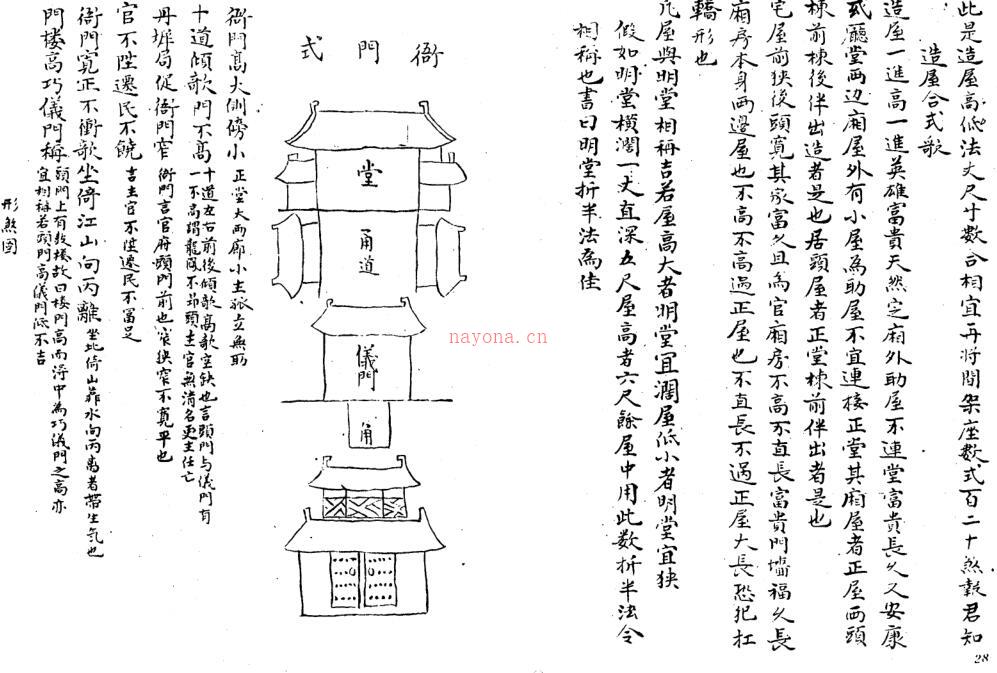 此是造屋高低法丈尺寸數合相宜再將間架座数式百二十煞君知
造屋合式歌
造屋一進高一進英雄富貴天然定廂外助屋不連堂富貴長久又安康
或廳堂两边廂屋外有小屋為助屋不宜連接正堂其廂屋者正屋两頭
棟前棟後伴出造者是也居頭屋者正堂棟前伴出者是也
宅屋前狹後頭寬其家富久且為官廂房不高不直長富貴門墻福久長
廂房本身两邊屋也不高不高過正屋也不直長不過正屋大長恐犯杠
轎形也
凡屋與明堂相稱吉若屋高大者明堂宜濶屋低小者明堂宜狹
假如明堂橫濶一丈直深五尺屋高者六尺餘屋中用此数折半法令
相稱也書曰明堂折半法為佳
28
衙門式
堂
甬道
儀門
甬
nayona.cn
衙門高大側傍小 正堂大两廊小主孤立無助
十道傾欹門不高 十道左右前後傾欹高欹空缺也言頭門与儀門有
一不高謂龍虎不昂頭主官無清名更主仕亡
丹墀局促衙門窄 衙門言官府頭門前也窄狹窄不寬平也
官不陞遷民不饒 言主官不陞遷民不富足
衙門寬正不衝欹坐倚江山向丙離 坐北倚山葬水向丙离者帶生気也
門楼高巧儀門稱 頭門上有鼓楼故曰楼門高而得中為巧儀門之高亦
宜相稱若頭門高儀門低不吉
形煞圖